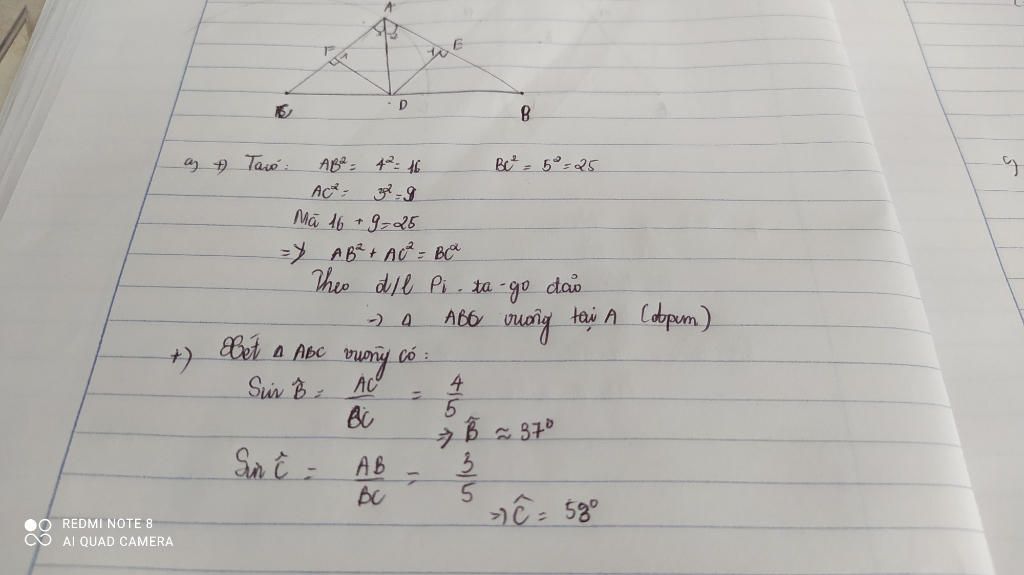 A
F
E
D
B
a, +) Ta có: AB² = 4² = 16 BC² = 5² = 25
AC² = 3² = 9
Mà 16 + 9 = 25
=> AB² + AC² = BC²
Theo đ/l Pi-ta-go đảo
-> Δ ABC vuông tại A (đpcm)
+) Xét Δ ABC vuông có:
Sin B̂ = AC/BC = 4/5
=> B̂ ≈ 37°
Sin Ĉ = AB/BC = 3/5
=> Ĉ = 53°
REDMI NOTE 8
AI QUAD CAMERA